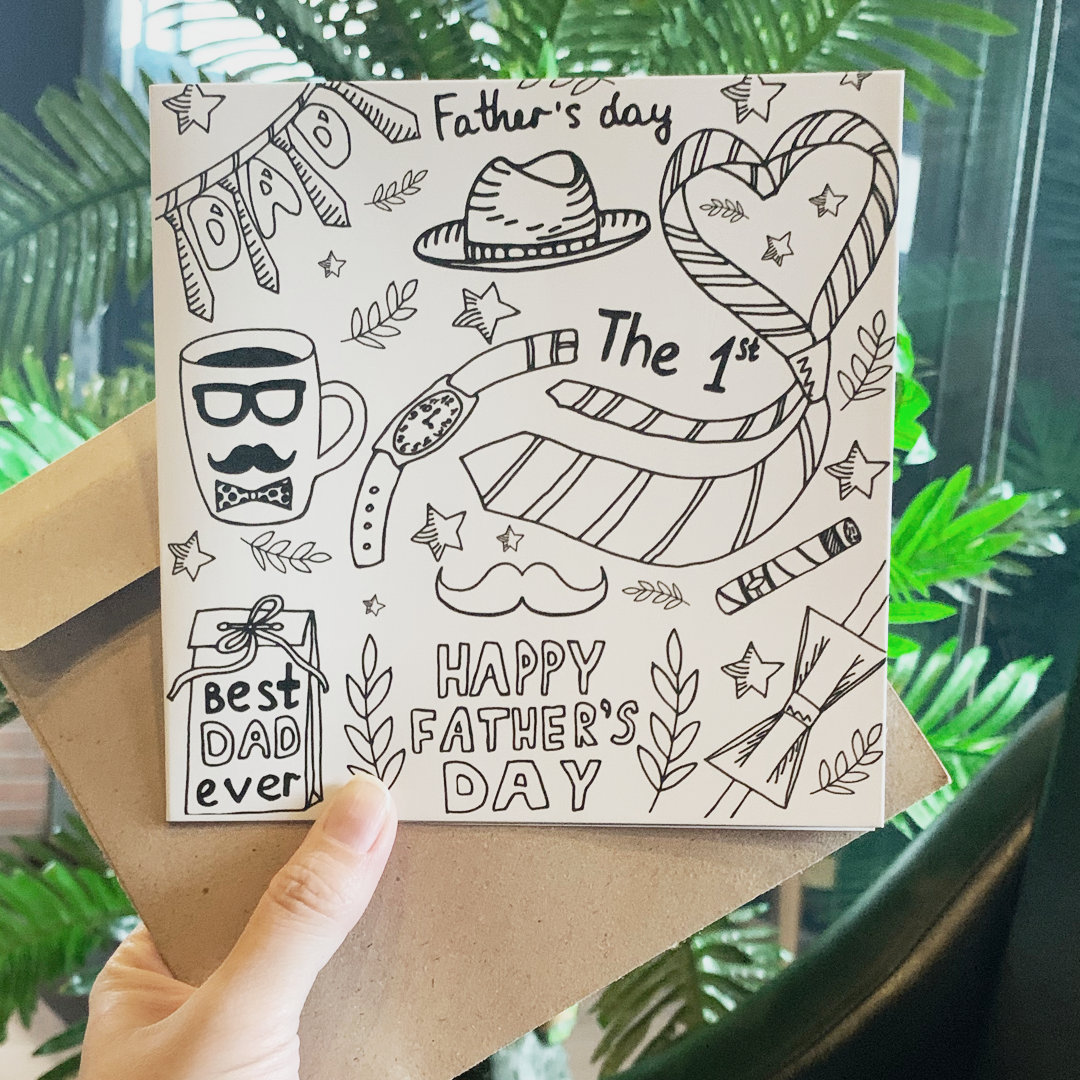 Father's day
DAD
The 1st
Best
DAD
ever
HAPPY
FATHER'S
DAY